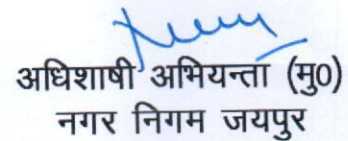 अधिशाषी अभियन्ता (मु0)
नगर निगम जयपुर